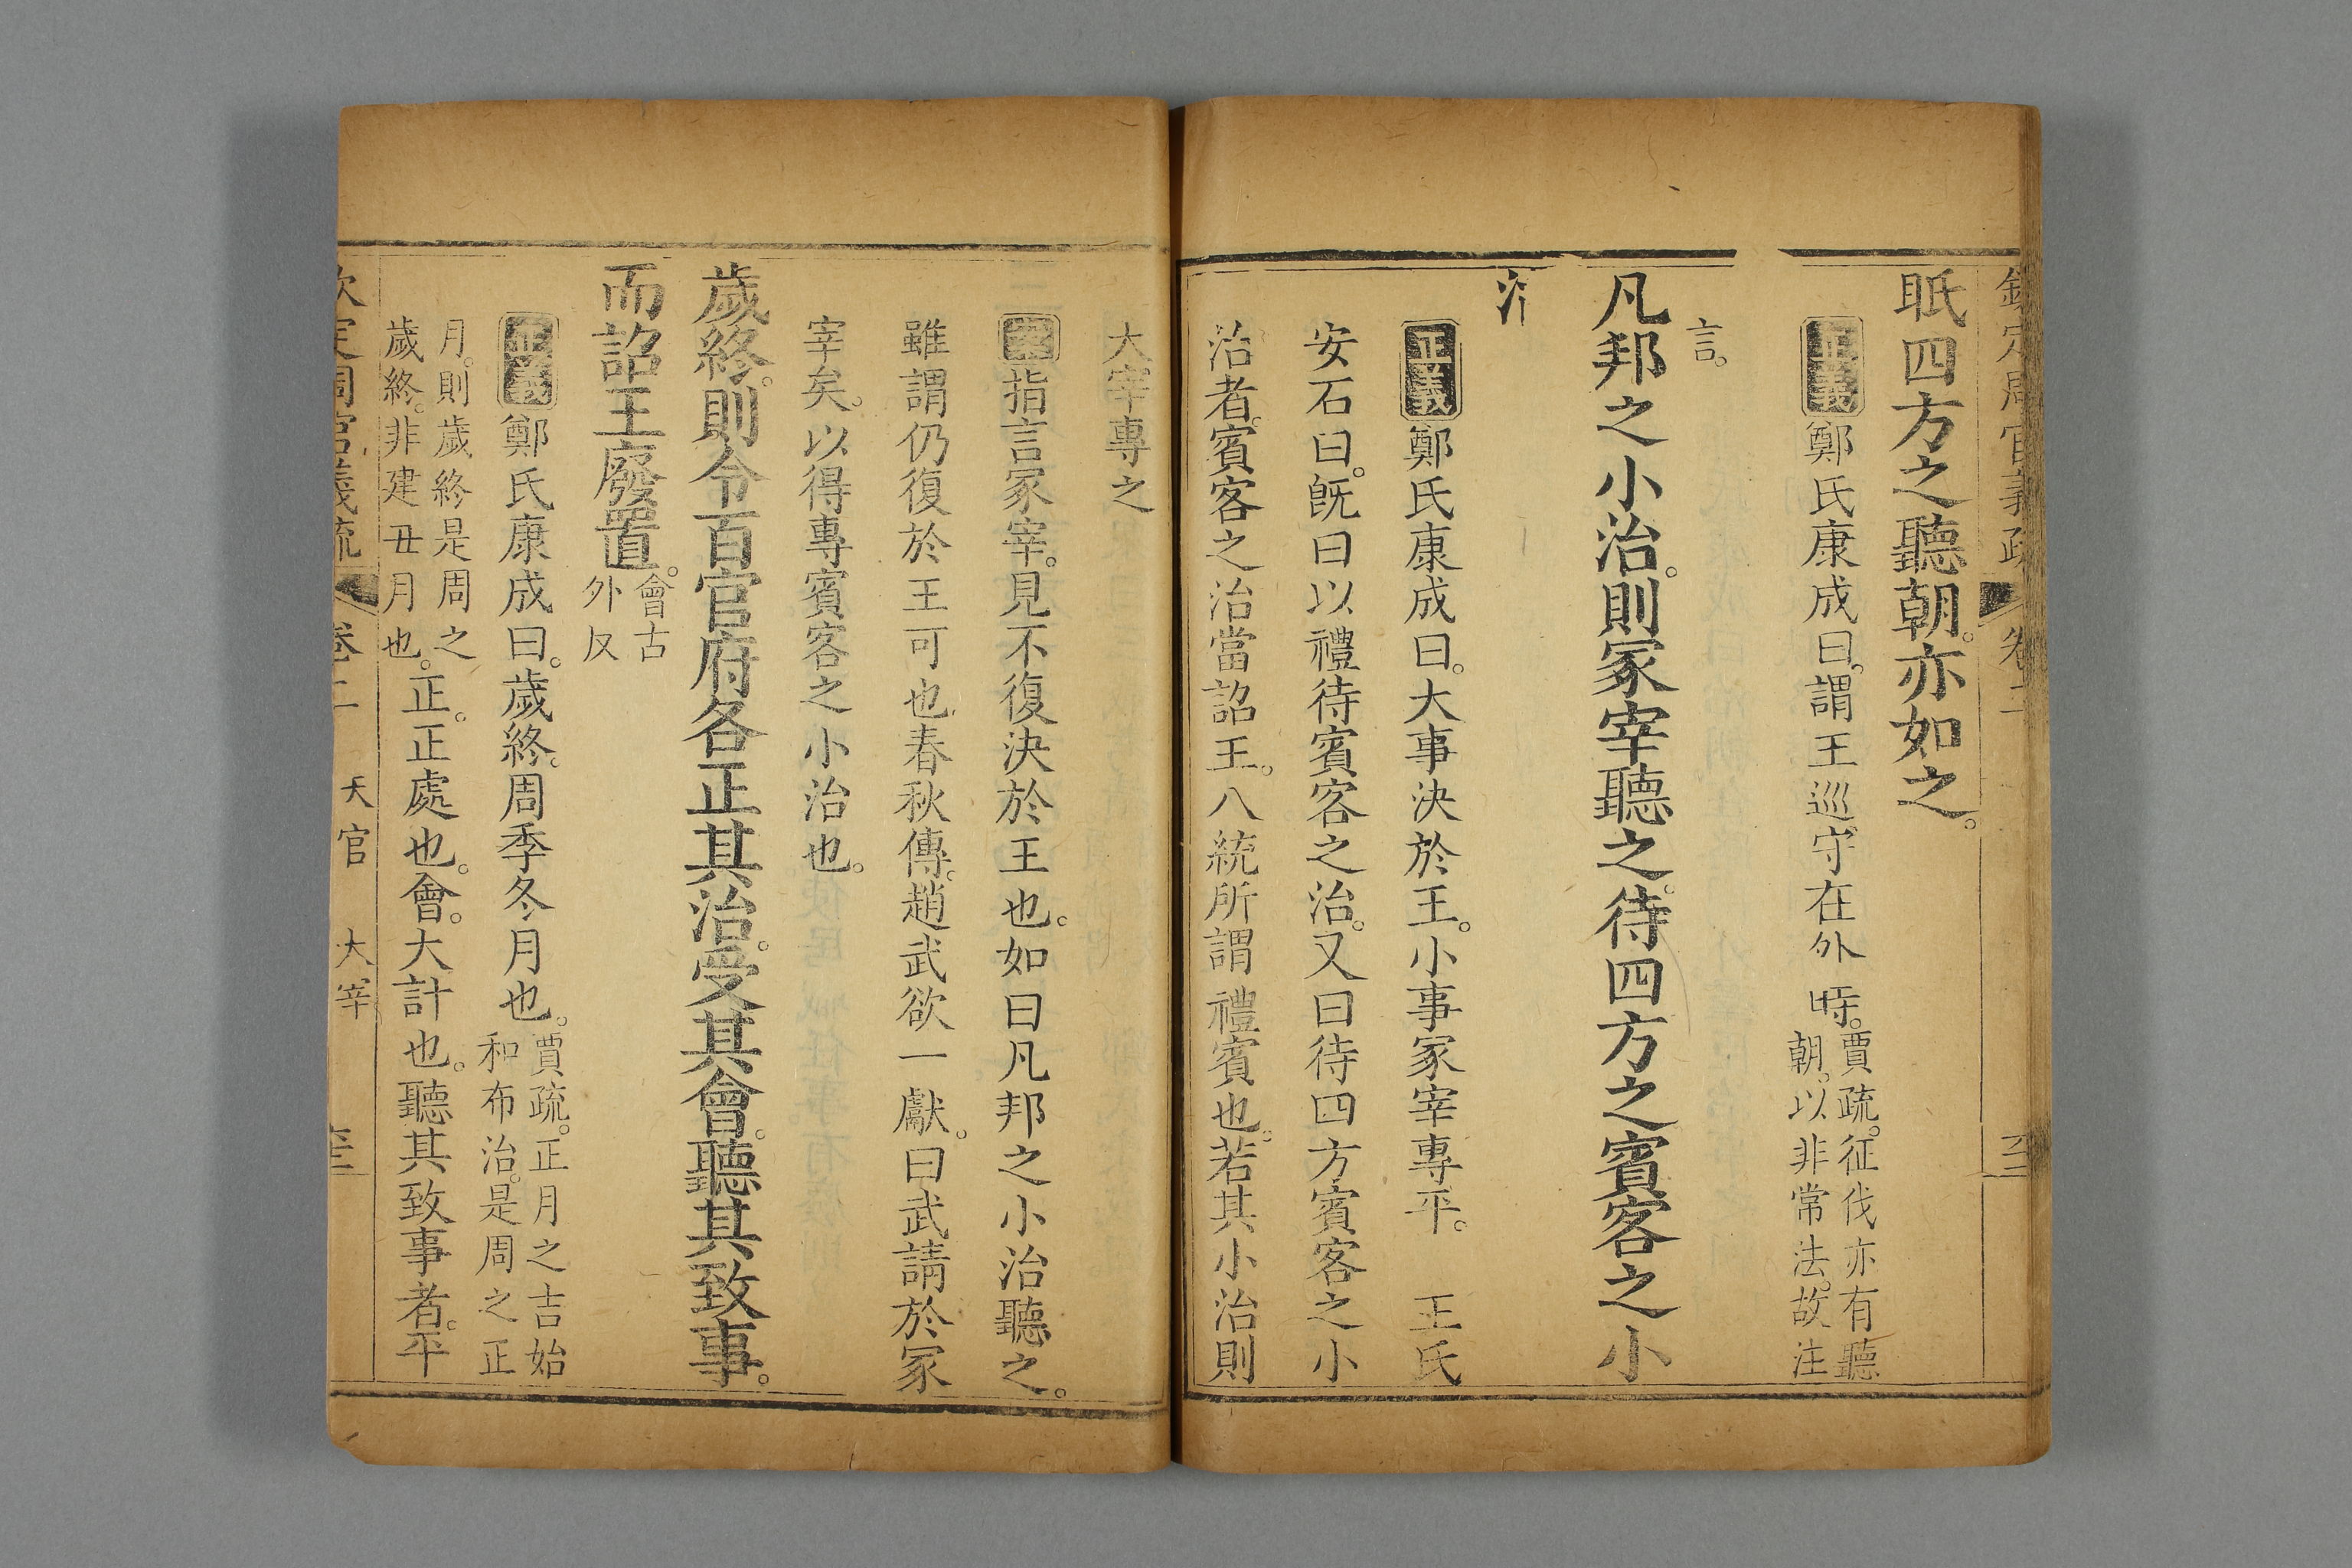 欽定周官義疏 卷二
眡四方之聽朝。亦如之。
正義 鄭氏康成曰。謂王巡守在外時。賈疏。征伐亦有聽
朝。以非常法。故注
言。
凡邦之小治。則冢宰聽之。待四方之賓客之小
治
正義 鄭氏康成曰。大事決於王。小事冢宰專平。 王氏
安石曰。旣曰以禮待賓客之治。又曰待四方賓客之小
治者。賓客之治當詔王。八統所謂禮賓也。若其小治則
大宰專之
指言冢宰。見不復決於王也。如曰凡邦之小治聽之。
雖謂仍復於王可也。春秋傳。趙武欲一獻。曰武請於冢
宰矣。以得專賓客之小治也。
歲終。則令百官府各正其治。受其會。聽其致事。
而詔王廢置。會古
外反
正義 鄭氏康成曰。歲終。周季冬月也。賈疏。正月之吉始
和布治。是周之正
月。則歲終是周之
歲終。非建丑月也。正。正處也。會。大計也。聽其致事者。平
欽定周官義疏 卷二 天官 大宰